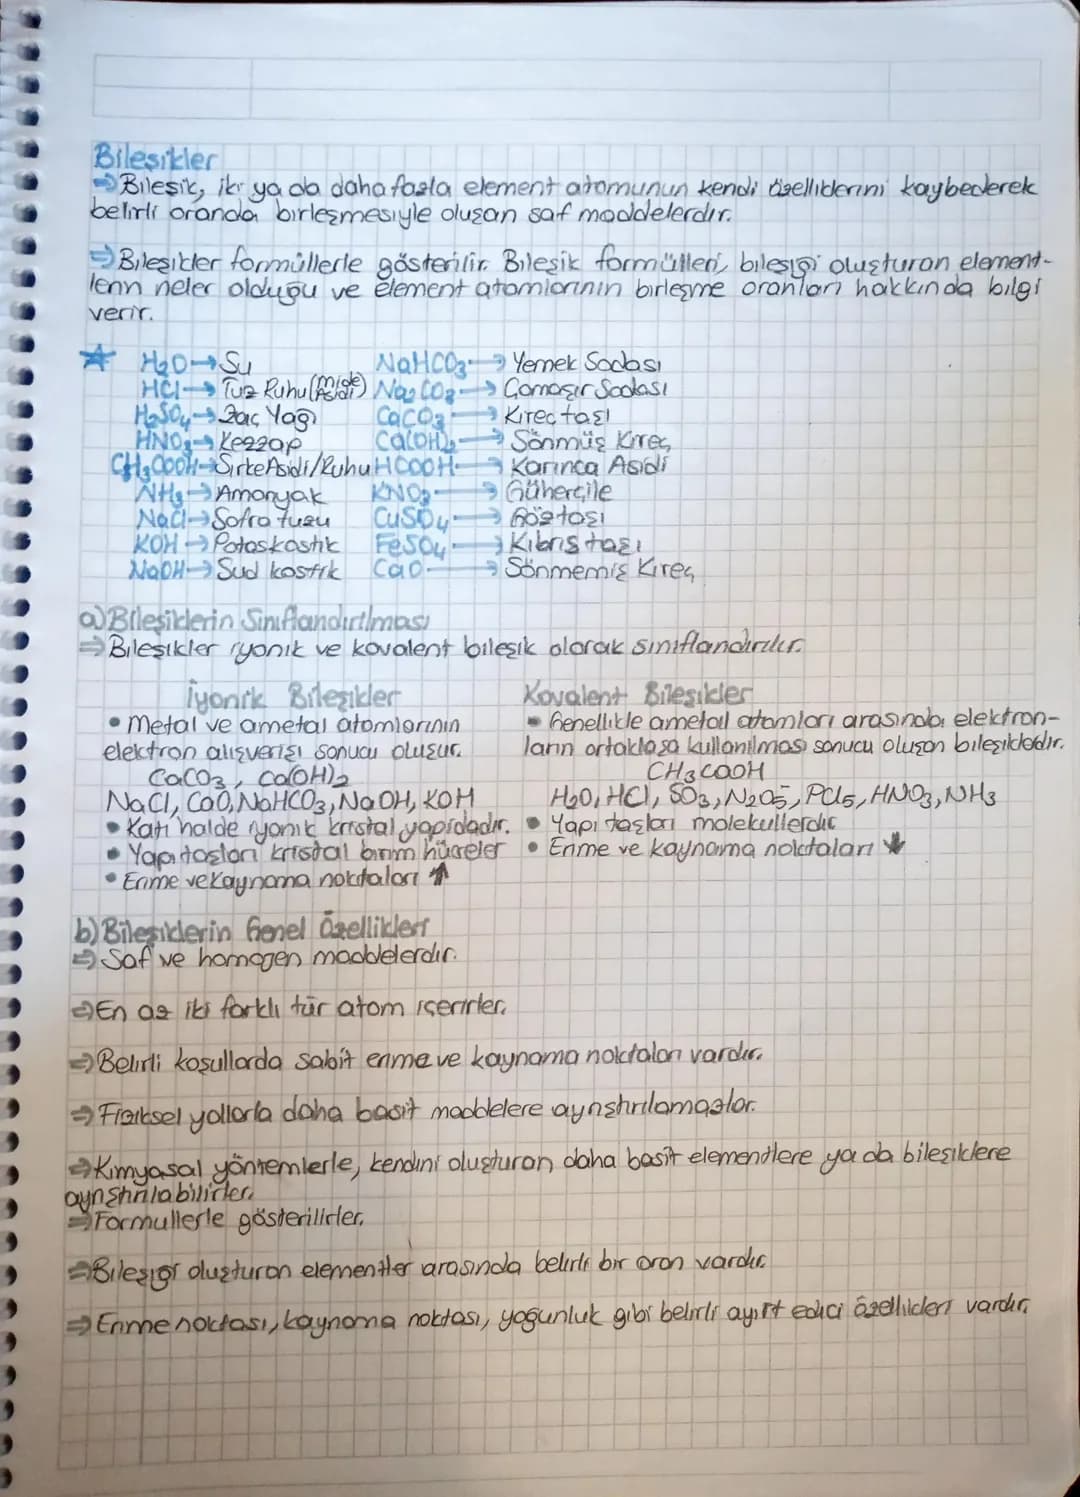 Bileşikler
⇒Bileşik, iki ya da daha fazla element atomunun kendi özelliklerini kaybederek
belirli oranda birleşmesiyle oluşan saf maddelerdir.
⇒Bileşikler formüllerle gösterilir. Bileşik formülleri, bileşiği oluşturan element-
lerin neler olduğu ve element atomlarının birleşme oranları hakkında bilgi
verir.
☆ H₂O→Su NaHCO₃→Yemek Sodası
HCl→Tuz Ruhu(Mide Asidi) Na₂CO₃→Çamaşır Sodası
H₂SO₄→Zaç Yağı CaCO₃→Kireç taşı
HNO₃→Kezzap Ca(OH)₂→Sönmüş Kireç
CH₃COOH→Sirke Asidi/Ruhu HCOOH→Karınca Asidi
NH₃→Amonyak KNO₃→Güherçile
NaCl→Sofra tuzu CuSO₄→Göztaşı
KOH→Potaskostik FeSO₄→Kıbrıs taşı
NaOH→Sud kostik CaO→Sönmemiş Kireç
a)Bileşiklerin Sınıflandırılması
⇒Bileşikler iyonik ve kovalent bileşik olarak sınıflandırılır.
İyonik Bileşikler
• Metal ve ametal atomlarının
elektron alışverişi sonucu oluşur.
CaCO₃, Ca(OH)₂
NaCl, CaO, NaHCO₃, NaOH, KOH
• Katı halde iyonik kristal yapıdadır.
• Yapıtaşları kristal birim hücreler
• Erime ve kaynama noktaları ↑
Kovalent Bileşikler
• Genellikle ametal atomları arasında elektron-
ların ortaklaşa kullanılması sonucu oluşan bileşiklerdir.
CH₃COOH
H₂O, HCl, SO₃, N₂O₅, PCl₅, HNO₃, NH₃
• Yapı taşları moleküllerdir
• Erime ve kaynama noktaları ↓
b)Bileşiklerin Genel Özellikleri
⇒Saf ve homogen maddelerdir.
⇒En az iki farklı tür atom içerirler.
⇒Belirli koşullarda sabit erime ve kaynama noktaları vardır.
⇒Fiziksel yollarla daha basit maddelere ayrıştırılamazlar.
⇒Kimyasal yöntemlerle, kendini oluşturan daha basit elementlere ya da bileşiklere
ayrıştırılabilirler.
⇒Formullerle gösterilirler.
⇒Bileşiği oluşturan elementler arasında belirli bir oran vardır.
⇒Erime noktası, kaynama noktası, yoğunluk gibi belirli ayırt edici özellikleri vardır.